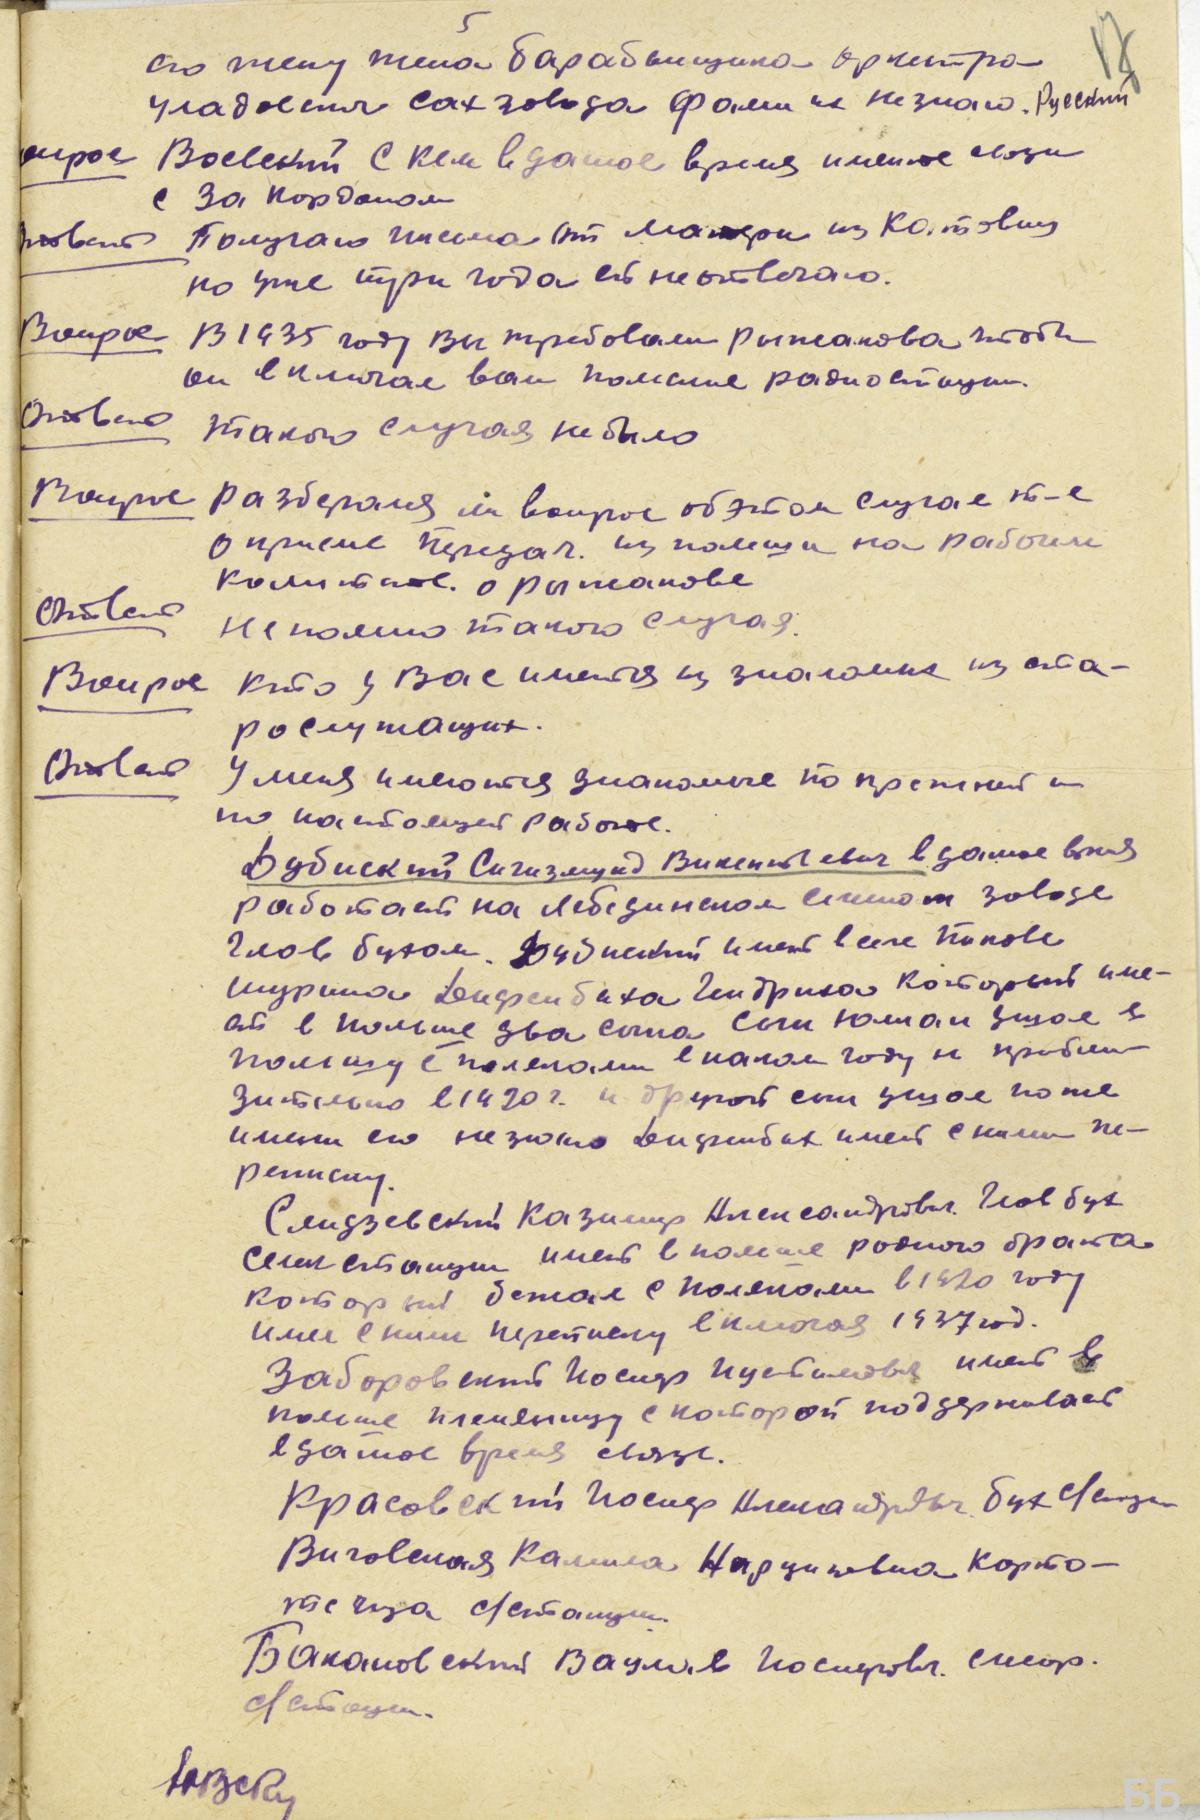 5
17
его жену жена барабанщика оркестра
уладовский сахзавода фамил не знаю. Русский
опрос Воевский С кем в даное время имеете связи
с За Кордоном
Ответ Получаю письма от матери из Катовиц
но уже три года ей не отвечаю.
Вопрос В 1935 году Вы требовали Рыжакова чтобы
он включал вам польские радиостанции.
Ответ Такого случая не было
Вопрос Разберался ли вопрос об этом случае т-е
о приеме передач. из польши на рабочем
комитете. о Рыжакове
Ответ Не помню такого случая.
Вопрос Кто у Вас имеется из знакомых из ста-
рослужащих.
Ответ У меня имеются знакомые по прежней и
по настоящей работе.
Дубиский Сигизмунд Викентьевич в даное время
работает на Лебединском заводе
Глав бухом. Дубиский имеет в селе Пиково
шурина Генриха который име-
ет в Польше два сына сын Юлиан ушол в
польшу с поляками в каком году н прибли-
зительно в 1920 г. и другой сын ушол тоже
имени его не знаю имеет с ними пе-
реписку.
Слидзевский Казимир Александрович. Глав бух
селекстанции имеет в польше родного брата
который бежал с поляками в 1920 году
имел с ним переписку включая 1937 год.
Заборовский Иосиф имеет в
польше племяницу с которой поддерживает
в даное время связь.
Красовский Иосиф Александрович. бух с/станции
Виговская Камила Нарцизовна Карто-
течица с/станции.
Бакановский Вацлав Иосифович.
с/станции.
ББ